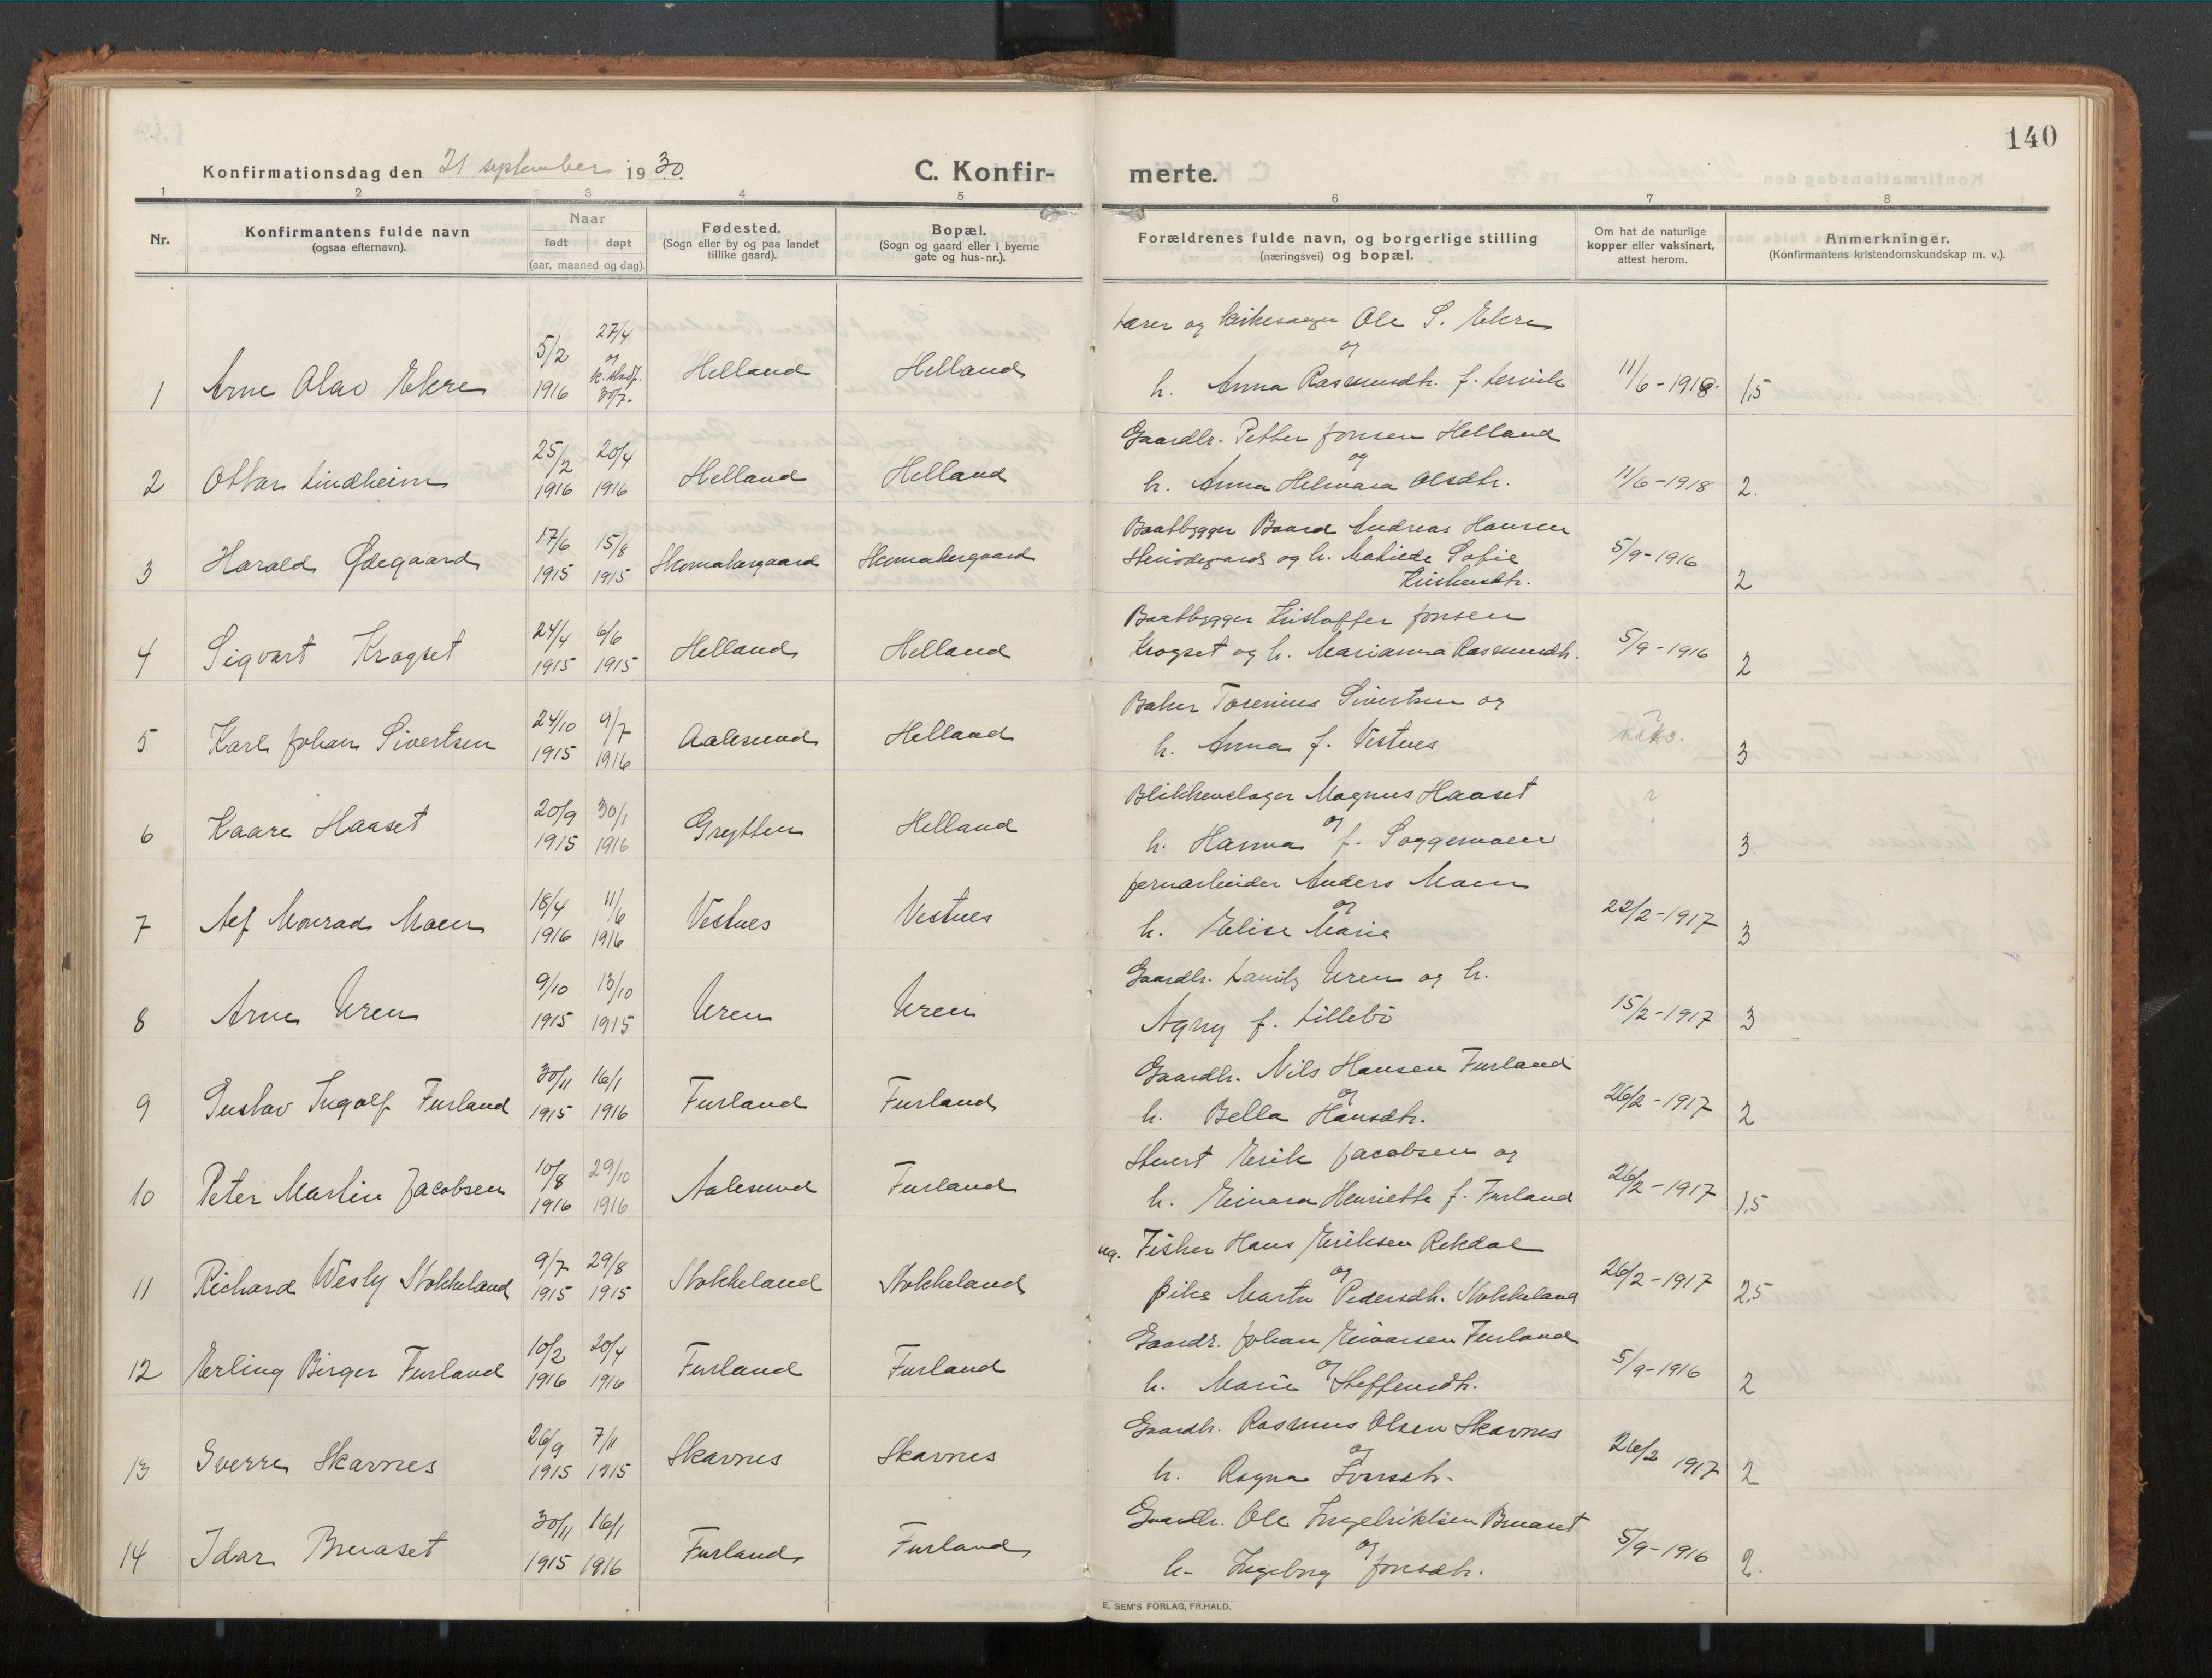 140
Konfirmationsdag den 21 september 1930.
C. Konfirmerte.
1 2 3 4 5 6 7 8
Nr.
Konfirmantens fulde navn
(ogsaa efternavn).
Naar
født døpt
(aar, maaned og dag).
Fødested.
(Sogn eller by og paa landet
tillike gaard).
Bopæl.
(Sogn og gaard eller i byerne
gate og hus-nr.).
Forældrenes fulde navn, og borgerlige stilling
(næringsvei) og bopæl.
Om hat de naturlige
kopper eller vaksinert,
attest herom.
Anmerkninger.
(Konfirmantens kristendomskundskap m. v.).
1 Arne Olav Ekre 5/2 1916 27/4 og 30/7. Helland Helland
Lærer og kirkesanger Ole S. Ekre
og
h. Anna Rasmusdtr. f. Lervik 11/6-1918. 1,5
2 Ottar Lindheim 25/2 1916 20/4 1916 Helland Helland
Gaardbr. Petter Jonsen Helland
og
h. Anna Helmara Olsdtr. 11/6-1918 2.
3 Harald Ødegaard 17/6 1915 15/8 1915 Skomakergaard Skomakergaard
Baatbygger Baard Andreas Hansen
og h. Matilde Sofie
Kristensdtr. 5/9-1916 2
4 Sigvart Krogset 24/4 1915 6/6 1915 Helland Helland
Baatbygger Kristoffer Jonsen
Krogset og h. Marianna Rasmusdtr. 5/9-1916 2
5 Karl Johan Sivertsen 24/10 1915 9/7 1916 Aalesund Helland
Baker Sivertsen og
h. Anna f. Vestnes ? 3
6 Kaare Haaset 20/9 1915 30/1 1916 Grytten Helland
Blikkenslager Magnus Haaset
og
h. Hanna f. Soggemoen ? 3
7 Alf Monrad Moen 18/4 1916 11/6 1916 Vestnes Vestnes
Jernarbeider Anders Moen
og
h. Elise Marie 22/2-1917 3
8 Arne Uren 9/10 1915 13/10 1915 Uren Uren
Gaardbr. Lauritz Uren og h.
Agny f. Lillebö 15/2-1917 3
9 Gustav Ingolf Furland 30/11 1915 16/1 1916 Furland Furland
Gaardbr. Nils Hansen Furland
og
h. Bella Hansdtr. 26/2-1917 2
10 Peter Martin Jacobsen 10/8 1916 29/10 1916 Aalesund Furland
Stuert Erik Jacobsen og
h. Einara Henriette f. Furland 26/2-1917 1,5
11 Richard Wesly Stokkeland 9/7 1915 29/8 1915 Stokkeland Stokkeland
ug. Fisker Hans Eriksen Rekdal
og
pike Marta Pedersdtr. Stokkeland 26/2-1917 2,5
12 Erling Birger Furland 10/2 1916 20/4 1916 Furland Furland
Gaardbr. Johan Einarsen Furland
og
h. Marie Steffensdtr. 5/9-1916 2
13 Sverre Skavnes 26/9 1915 7/11 1915 Skavnes Skavnes
Gaardbr. Rasmus Olsen Skavnes
og
h. Ragna Iversdtr. 26/2 1917 2
14 Idar Bruaset 30/11 1915 16/1 1916 Furland Furland
Gaardbr. Ole Ingebriktsen Bruaset
og
h. Ingeborg Jonsdtr. 5/9-1916 2.
E. SEM'S FORLAG, FR.HALD.